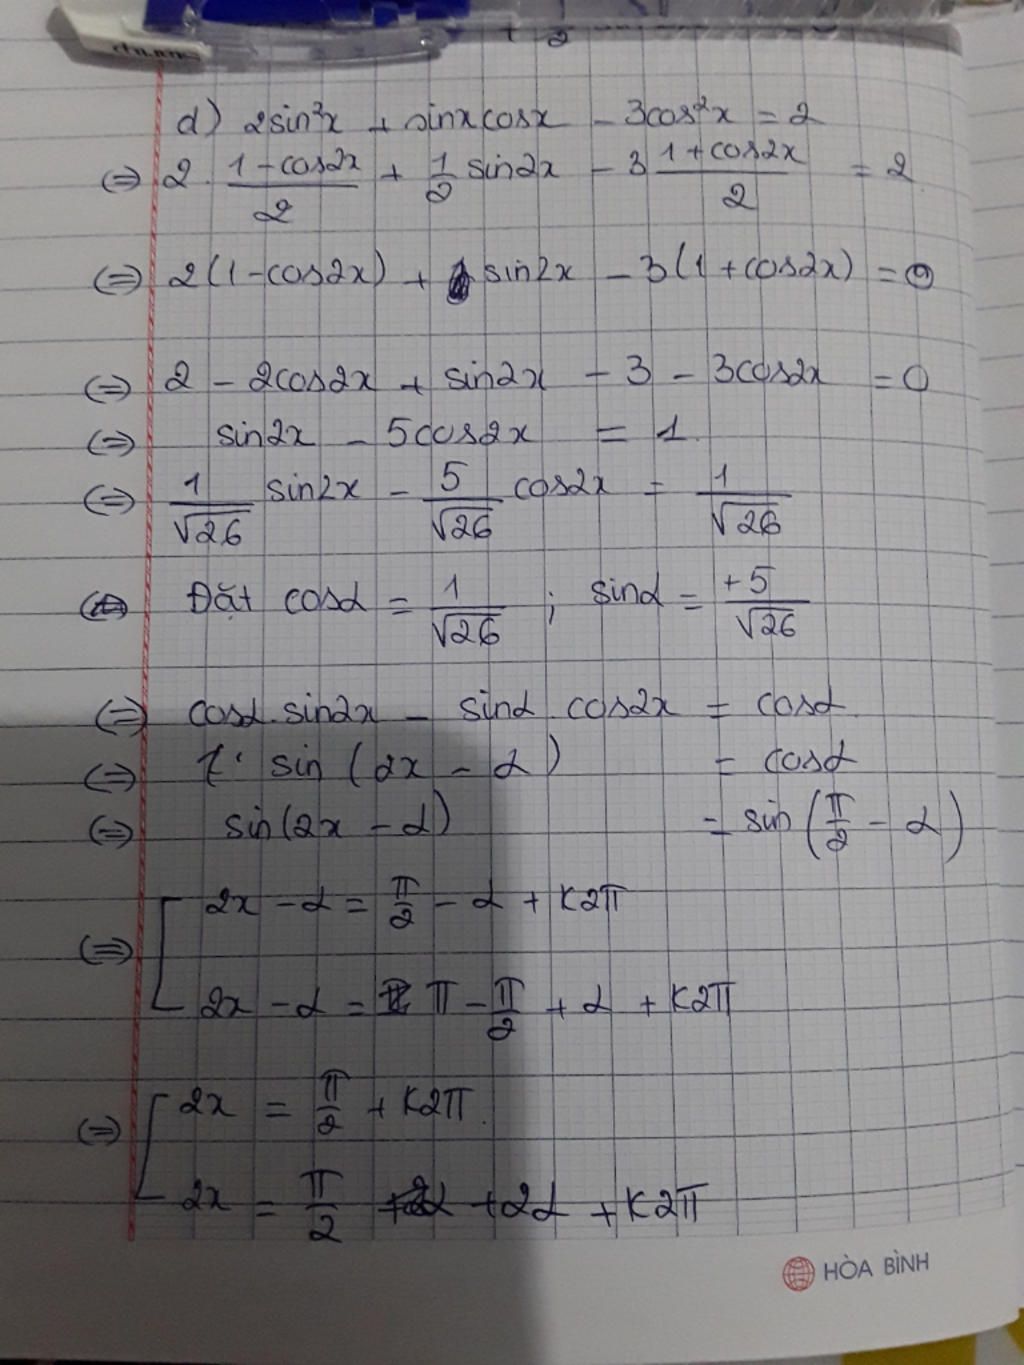 d) 2sin²x + sinxcosx - 3cos²x = 2
⇔ 2. (1-cos2x)/2 + 1/2 sin2x - 3 (1+cos2x)/2 = 2
⇔ 2(1-cos2x) + sin2x - 3(1+cos2x) = 0
⇔ 2 - 2cos2x + sin2x - 3 - 3cos2x = 0
⇔ sin2x - 5cos2x = 1
⇔ 1/√26 sin2x - 5/√26 cos2x = 1/√26
Đặt cosα = 1/√26 ; sinα = +5/√26
⇔ cosα.sin2x - sinα.cos2x = cosα
⇔ sin (2x - α) = cosα
⇔ sin(2x - α) = sin (π/2 - α)
⇔ [ 2x - α = π/2 - α + K2π
2x - α = π - π/2 + α + K2π
⇔ [ 2x = π/2 + K2π
2x = π/2 + 2α + K2π
HÒA BÌNH